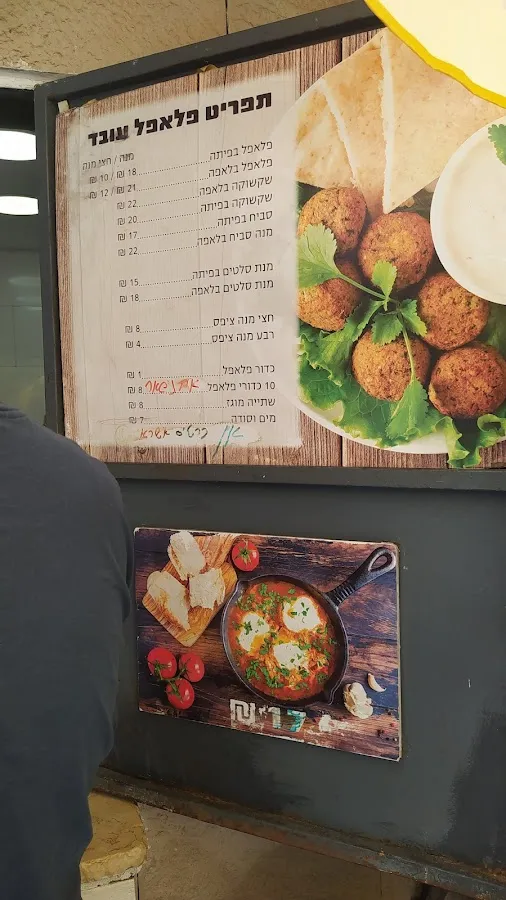 תפריט פלאפל עובד
מנה / חצי מנה
פלאפל בפיתה 18 ₪ / 10 ₪
פלאפל בלאפה 21 ₪ / 12 ₪
שקשוקה בלאפה 22 ₪
שקשוקה בפיתה 20 ₪
סביח בפיתה 17 ₪
מנה סביח בלאפה 22 ₪
מנת סלטים בפיתה 15 ₪
מנת סלטים בלאפה 18 ₪
חצי מנה ציפס 8 ₪
רבע מנה ציפס 4 ₪
כדור פלאפל 1 ₪
10 כדורי פלאפל 8 ₪
שתייה מוגז 8 ₪
מים וסודה 7 ₪
אין כרטיס אשראי